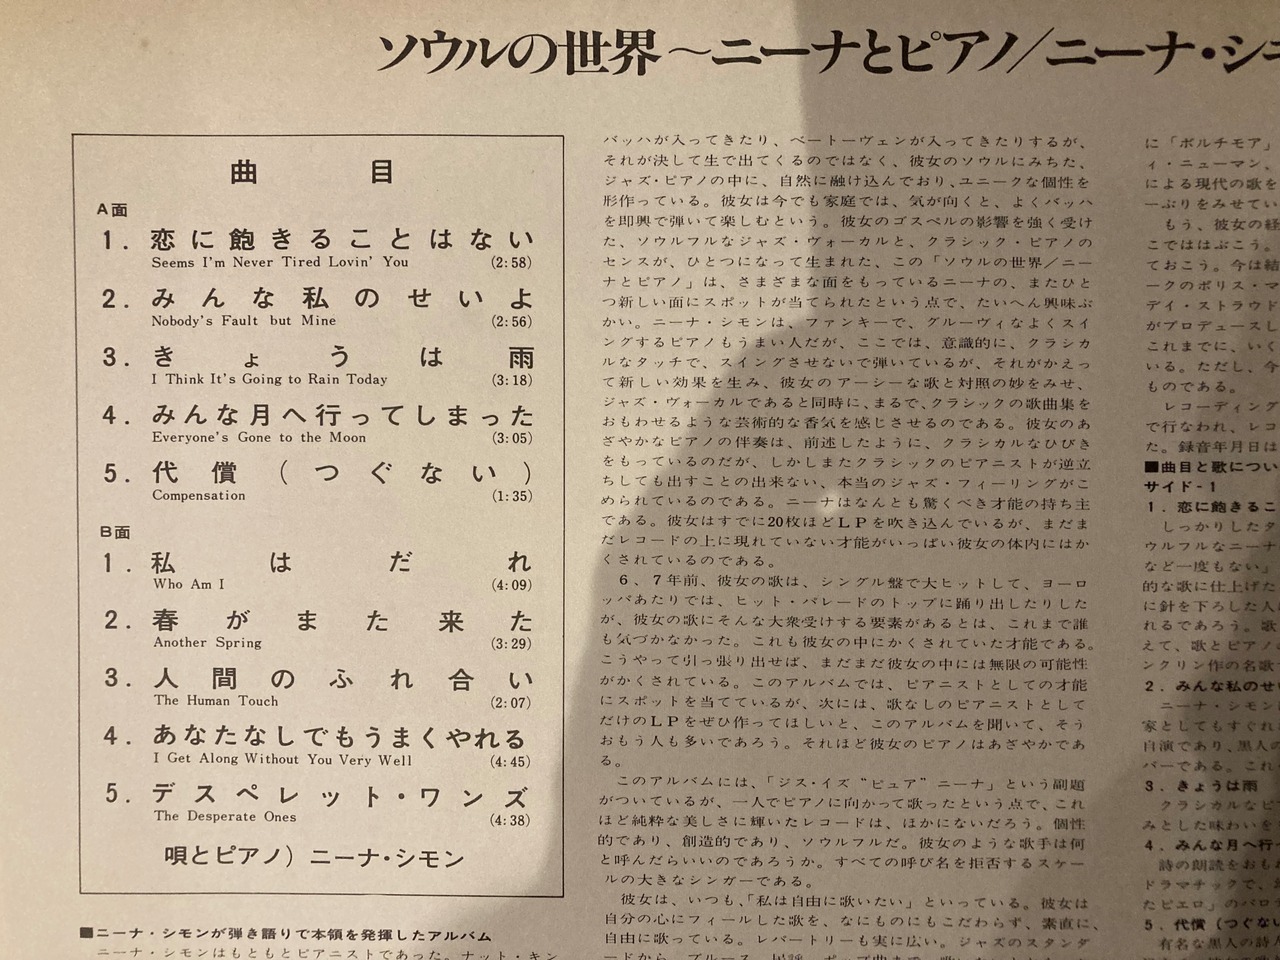 ソウルの世界～ニーナとピアノ／ニーナ・シモ
曲目
A面
1. 恋に飽きることはない
Seems I'm Never Tired Lovin' You (2:58)
2. みんな私のせいよ
Nobody's Fault but Mine (2:56)
3. きょうは雨
I Think It's Going to Rain Today (3:18)
4. みんな月へ行ってしまった
Everyone's Gone to the Moon (3:05)
5. 代償（つぐない）
Compensation (1:35)
B面
1. 私はだれ
Who Am I (4:09)
2. 春がまた来た
Another Spring (3:29)
3. 人間のふれ合い
The Human Touch (2:07)
4. あなたなしでもうまくやれる
I Get Along Without You Very Well (4:45)
5. デスペレット・ワンズ
The Desperate Ones (4:38)
唄とピアノ）ニーナ・シモン
■ニーナ・シモンが弾き語りで本領を発揮したアルバム
ニーナ・シモンはもともとピアニストであった。ナット・キン
バッハが入ってきたり、ベートーヴェンが入ってきたりするが、
それが決して生で出てくるのではなく、彼女のソウルにみちた、
ジャズ・ピアノの中に、自然に融け込んでおり、ユニークな個性を
形作っている。彼女は今でも家庭では、気が向くと、よくバッハ
を即興で弾いて楽しむという。彼女のゴスペルの影響を強く受け
た、ソウルフルなジャズ・ヴォーカルと、クラシック・ピアノの
センスが、ひとつになって生まれた、この「ソウルの世界／ニー
ナとピアノ」は、さまざまな面をもっているニーナの、またひと
つ新しい面にスポットが当てられたという点で、たいへん興味ぶ
かい。ニーナ・シモンは、ファンキーで、グルーヴィなよくスイ
ングするピアノもうまい人だが、ここでは、意識的に、クラシカ
ルなタッチで、スイングさせないで弾いているが、それがかえっ
て新しい効果を生み、彼女のアーシーな歌と対照の妙をみせ、
ジャズ・ヴォーカルであると同時に、まるで、クラシックの歌曲集を
おもわせるような芸術的な香気を感じさせるのである。彼女のあ
ざやかなピアノの伴奏は、前述したように、クラシカルなひびき
をもっているのだが、しかしまたクラシックのピアニストが逆立
ちしても出すことの出来ない、本当のジャズ・フィーリングがこ
められているのである。ニーナはなんとも驚くべき才能の持ち主
である。彼女はすでに20枚ほどＬＰを吹き込んでいるが、まだま
だレコードの上に現れていない才能がいっぱい彼女の体内にはか
くされているのである。
6、7年前、彼女の歌は、シングル盤で大ヒットして、ヨーロ
ッパあたりでは、ヒット・パレードのトップに踊り出したりした
が、彼女の歌にそんな大衆受けする要素があるとは、これまで誰
も気づかなかった。これも彼女の中にかくされていた才能である。
こうやって引っ張り出せば、まだまだ彼女の中には無限の可能性
がかくされている。このアルバムでは、ピアニストとしての才能
にスポットを当てているが、次には、歌なしのピアニストとして
だけのＬＰをぜひ作ってほしいと、このアルバムを聞いて、そう
おもう人も多いであろう。それほど彼女のピアノはあざやかであ
る。
このアルバムには、「ジス・イズ“ピュア”ニーナ」という副題
がついているが、一人でピアノに向かって歌ったという点で、これ
ほど純粋な美しさに輝いたレコードは、ほかにないだろう。個性
的であり、創造的であり、ソウルフルだ。彼女のような歌手は何
と呼んだらいいのであろうか。すべての呼び名を拒否するスケー
ルの大きなシンガーである。
彼女は、いつも、「私は自由に歌いたい」といっている。彼女は
自分の心にフィールした歌を、なにものにもこだわらず、素直に、
自由に歌っている。レパートリーも実に広い。ジャズのスタンダ
ードから、ブルース、民謡、ポップ曲まで、
に「ボルチモア」
ィ・ニューマン、
による現代の歌を
ーぶりをみせてい
もう、彼女の経
こでははぶこう。
ておこう。今は結
ークのボリス・マ
デイ・ストラウド
がプロデュースし
これまでに、いく
いる。ただし、今
ものである。
レコーディング
で行なわれ、レコ
た。録音年月日は
■曲目と歌につい
サイド-1
1．恋に飽きるこ
しっかりしたタ
ウルフルなニーナ
など一度もない」
的な歌に仕上げた
に針を下ろした人
れるであろう。歌
えて、歌とピアノの
ンクリン作の名歌
2．みんな私のせい
ニーナ・シモン
家としてもすぐれ
自演であり、黒人の
バーである。これ
3．きょうは雨
クラシカルなピ
みとした味わいを
4．みんな月へ行っ
詩の朗読をおもわ
ドラマチックで、
たピエロ」のバロ
5．代償（つぐない
有名な黒人の詩人